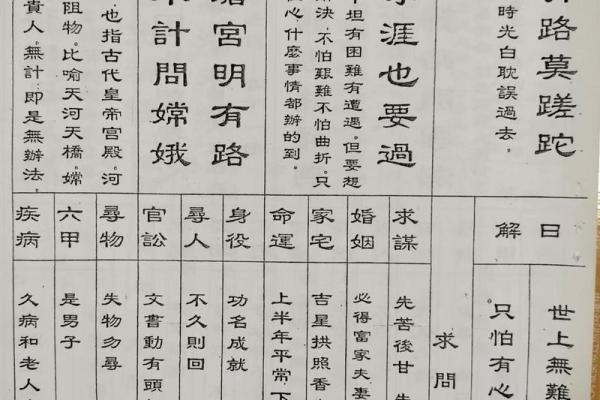 路莫蹉跎
時光白耽誤過去。
涯也要過
坦有困難有遭遇。但要想
決。不怕艱難不怕曲折。只
心。什麼事情都辦的到。
宮明有路
計問嫦娥
也指古代皇帝宮殿。河
阻物。比喻天河天橋。嫦
貴人。無計。即是無辦法。
日解
求謀
婚姻
家宅
命運
身役
尋人
官訟
尋物
六甲
疾病
世上無難
只怕有心
求問
先苦後甘
必得富家夫妻
吉星拱照香
上半年平常下
功名成就
不久則回
文書動有頭
失物勿尋
是男子
久病和老人